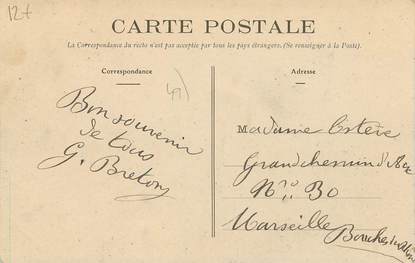 12+
CARTE POSTALE
La Correspondance du recto n'est pas acceptée par tous les pays étrangers. (Se renseigner à la Poste).
Correspondance
Adresse
Bon souvenir
de tous
G. Breton
Madame Estève
Grand chemin d'Aix
N° 30
Marseille
Bouches du Rhône